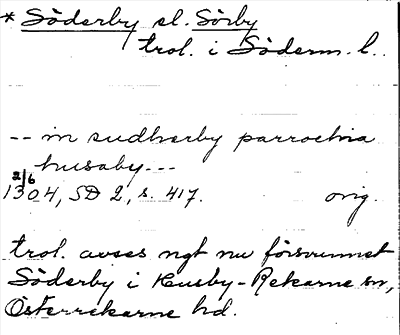 * Söderby el. Sörby
trol. i Söderm. l.
-- in sudherby parrochia
husaby---
2/6
1304, SD 2, s. 417. orig.
trol. avses ngt nu försvunnet
Söderby i Husby-Rekarne sn,
Österrekarne hd.